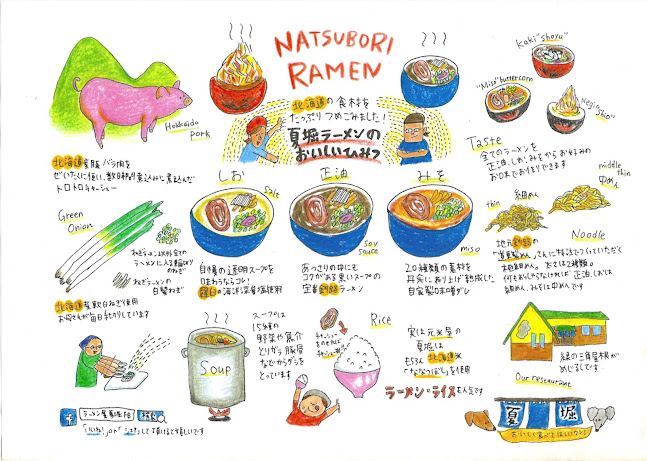 NATSUBORI
RAMEN
北海道の食材を
たっぷりつめこみました!
夏堀ラーメンの
おいしいひみつ
Hokkaido
pork
北海道産豚バラ肉を
トロトロチャーシュー
Kaki "shoyu"
"Miso" butter corn
"Negi" shio
Taste
全てのラーメンを
正油、しお、みそから お好みの
お味でお作りできます
しお
Salt
正油
Soy
sauce
みそ
miso
Green
Onion
ねぎラーメン以外全ての
ラーメンに入る
のねぎ
ねぎラーメンの
白髪ねぎ
北海道産軟白ねぎを使用
お母さんが毎日手切りしています
自慢の透明スープを
味わうならコレ!
羅臼の海洋深層塩使用
あっさりの中にも
コクがある黒いスープの
定番釧路ラーメン
20種類の素材を
丹念に練り上げ熟成した
自家製の味噌ダレ
thin
細めん
middle
thin
中めん
Noodle
地元釧路の
さんに特注でつくっていただく
太さは2種類。
正油、しおは
細めん、みそは中めんです
スープは
15種の
野菜や魚介
とりガラ、豚骨
などからダシを
とっています
Soup
Rice
チャーシュー
実は元米屋の
夏堀は
もちろん北海道米
「ななつぼし」を使用
ラーメン・ライスも人気です
緑の三角屋根が
めじるしです
Our restaurant
夏堀
f ラーメン夏堀 FB 検索
「いいね!」or「」して頂けると嬉しいです